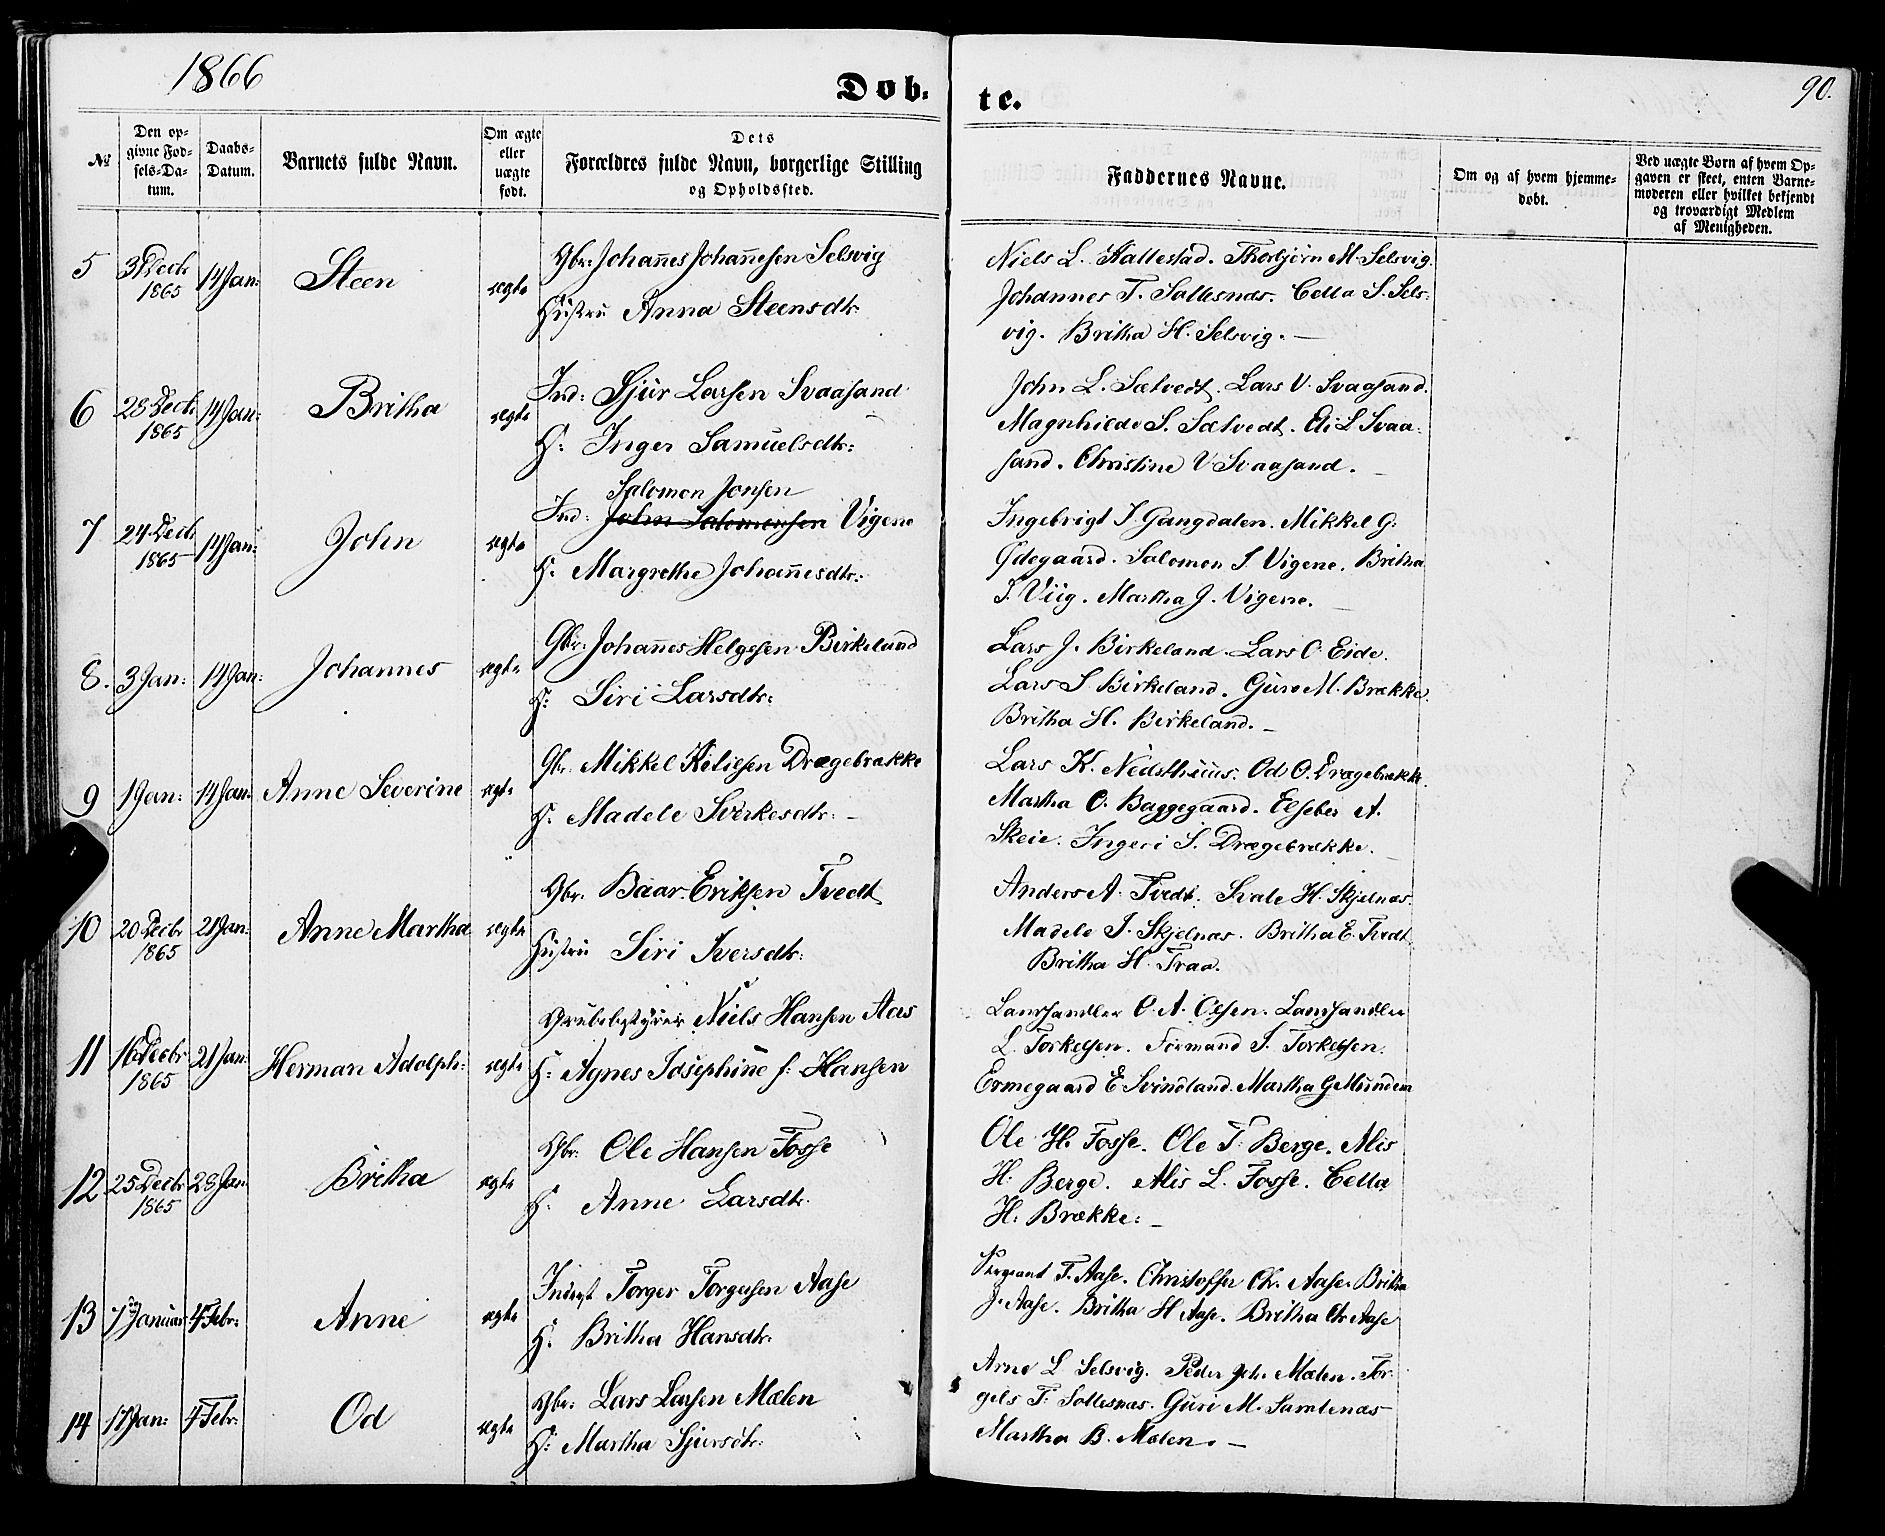 1866
Døb-
te.
90.
№
Den op-
givne Fød-
sels-Da-
tum.
Daabs-
Datum.
Barnets fulde Navn.
Om ægte
eller
uægte
født.
Dets
Forældres fulde Navn, borgerlige Stilling
og Opholdssted.
Faddernes Navne.
Om og af hvem hjemme-
døbt.
Ved uægte Børn af hvem Op-
gaven er skeet, enten Barne-
moderen eller hvilket bekjendt
og troværdigt Medlem
af Menigheden.
5 31 Decbr 1865 14 Jan: Steen ægte
Gbr: Johannes Johannesen Selsvig
Hustru Anna Steensdtr:
Niels L. Hallestad. Thorbjörn M. Selsvig.
Johannes T. Soltesnæs. Cella S. Sels-
vig. Britha H. Selsvig. —
6 28 Decbr 1865 14 Jan: Britha ægte
Ind: Sjur Larsen Svaasand
H: Inger Samuelsdtr:
John L. Sætvedt. Lars V. Svaasand.
Magnhilde S. Sætvedt. Eli L Svaa-
sand. Christine V Svaasand. —
7 24 Decbr 1865 14 Jan: John ægte
Salomon Jonsen
Ind: John Salomonsen Vigene
H. Margrethe Johannesdtr:
Ingebrigt J. Gangdalen. Mikkel G.
Ødegaard. Salomon S. Vigene. Britha
S. Viig. Martha J. Vigene. —
8. 3 Jan: 14 Jan: Johannes ægte
Gbr: Johannes Helgesen Birkeland
H: Siri Larsdtr:
Lars J. Birkeland. Lars O. Eide.
Lars S Birkeland. Guro M. Brække.
Britha H. Birkeland. —
9 1 Jan: 14 Jan: Anne Severine ægte
Gbr. Mikkel Kittilsen Drægebrække
H. Madele Sverkesdtr: —
Lars K. Nedsthuus. Od O. Drægebrække.
Martha O. Baggegaard. Elseber A.
Skeie. Ingeri S. Drægebrække. —
10 20 Decbr 1865 21 Jan: Anne Martha ægte
Gbr. Baar Eriksen Tvedt
Hustru Siri Iversdtr:
Anders A. Tvedt. Svale H. Skjelnæs.
Madele I. Skjelnæs. Britha E. Tvedt
Britha H. Traa.
11 16 Decbr 1865 21 Jan: Herman Adolph: ægte
Grubebestyrer Niels Hansen Aas
H: Agnes Josephine f: Hansen
Landhandler O. A. Olsen. Landhandler
L. Torkelsen. Formand S. Torkelsen.
Ermegaard E Svindland. Martha G Mundem
12 25 Decbr 1865 28 Jan: Britha ægte
Gbr. Ole Hansen Fosse
H. Anne Larsdtr.
Ole H. Fosse. Ole T. Berge. Alis
H. Berge. Alis L. Fosse. Cella
H. Brække: —
13 7 Januar 4 Febr: Anne ægte
Inderst Torger Torgersen Aase
H. Britha Hansdtr:
Sergeant T. Aase. Christoffer Ch. Aase. Britha
J. Aase. Britha H Aase. Britha Chr Aase
14 17 Jan: 4 Febr: Od ægte
Gbr: Lars Larsen Mælen
H: Martha Sjursdtr:
Arne L Selsvig. Peder Joh. Mælen. Tor-
gels T. Soltesnæs. Guri M. Samlenæs
Martha B. Mælen. —